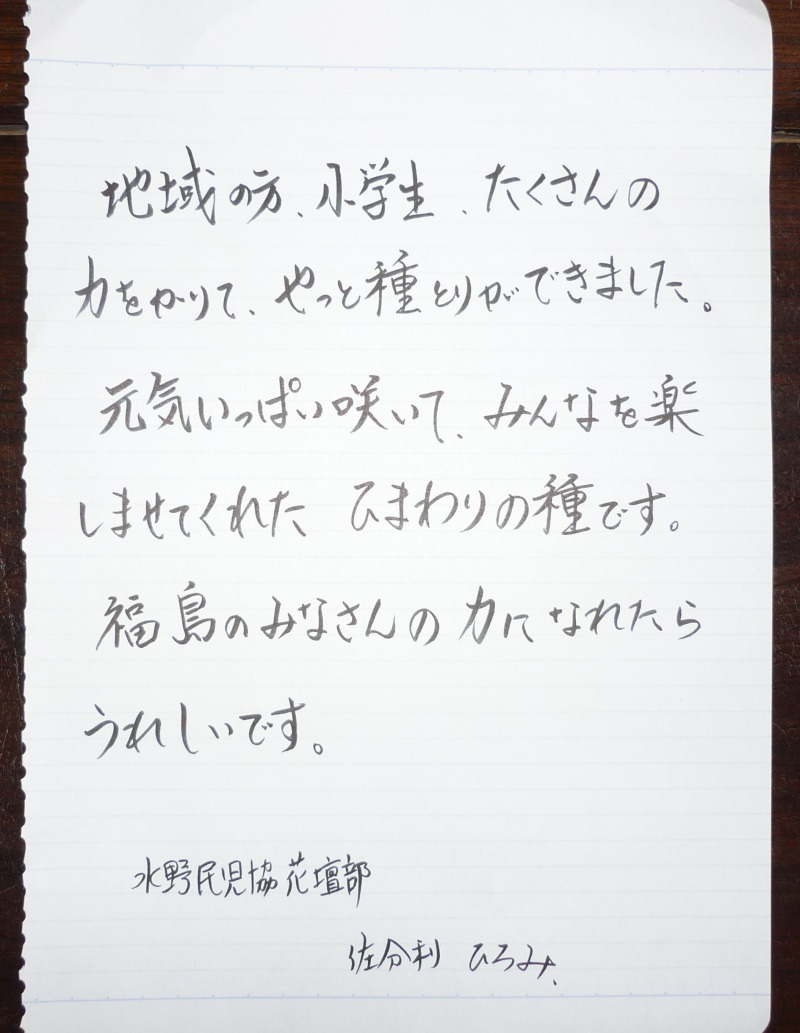 地域の方、小学生、たくさんの
力をかりて、やっと種とりができました。
元気いっぱい咲いて、みんなを楽
しませてくれた ひまわりの種です。
福島のみなさんの力になれたら
うれしいです。
水野民児協花壇部
佐分利 ひろみ